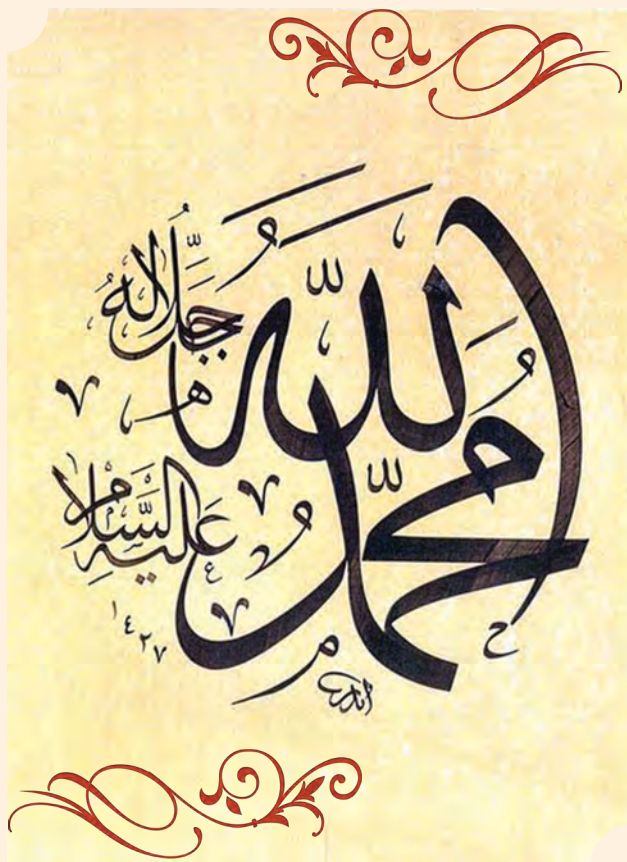 الله
جَلَّ جَلَالُهُ
مُحَمَّد
عَلَيْهِ السَّلَام
١٤٢٧